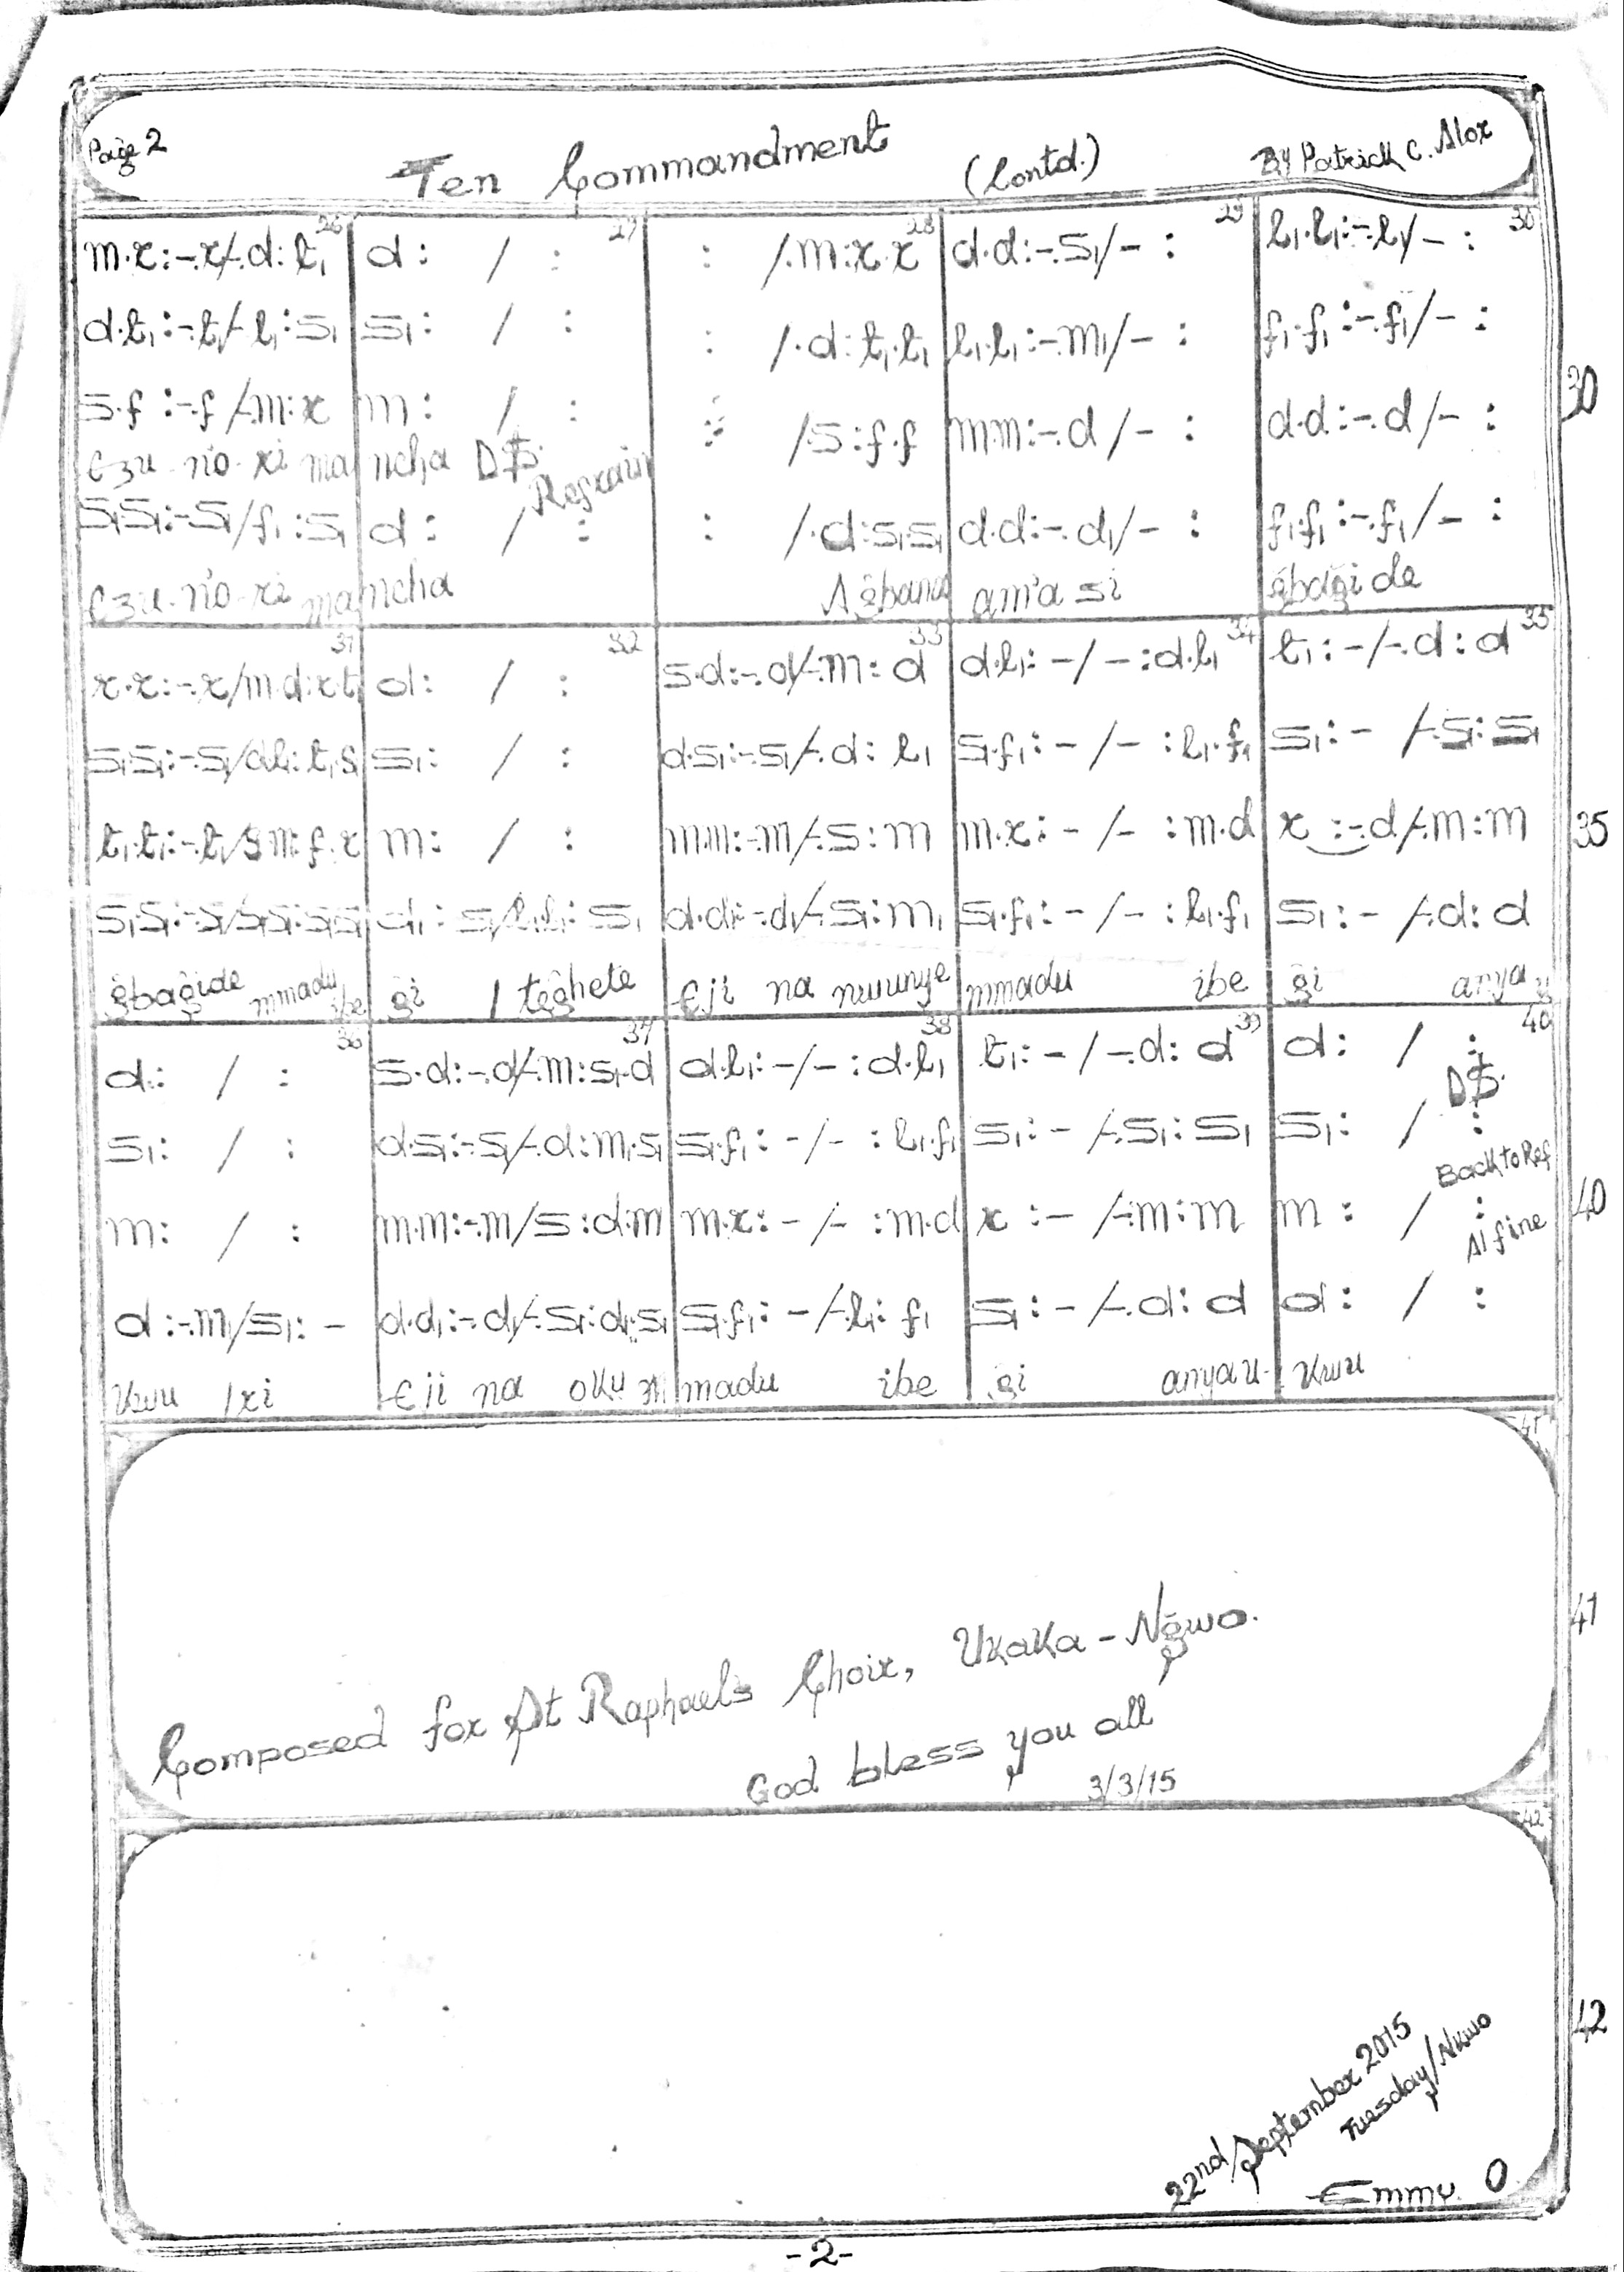 Page 2
Ten Commandment (Contd.) By Patrick C. Alor
26 27 28 29 30
m.r:-.r/-.d:t₁ d: / : : /.m:r.r d.d:-.s₁/- : l₁.l₁:-.l₁/- :
d.t₁:-.t₁/-l₁:s₁ s₁: / : : /.d:t₁.t₁ l₁.l₁:-.m₁/- : f₁.f₁:-.f₁/- :
s.f:-.f/-.m:r m: / : : /s:f.f m.m:-.d/- : d.d:-.d/- : 30
Ezu-n'o-ri ma ncha D.S. Refrain
s₁.s₁:-.s₁/f₁:s₁ d: / : : /.d:s₁.s₁ d.d:-.d₁/- : f₁.f₁:-.f₁/- :
Ezu-n'o-ri ma ncha A gbana am'a si gbagide
31 32 33 34 35
r.r:-.r/m.d:r.t₁ d: / : s.d:-.d/-.m:d d.l₁:-/-:d.l₁ t₁:-/-.d:d
s₁.s₁:-.s₁/d.l₁:t₁.s₁ s₁: / : d.s₁:-.s₁/-.d:l₁ s₁.f₁:-/-:l₁.f₁ s₁:-/-.s₁:s₁
t₁.t₁:-.t₁/s.m:f.r m: / : m.m:-.m/-.s:m m.r:-/-:m.d r:-.d/-.m:m 35
s₁.s₁:-.s₁/s₁.s₁:s₁.s₁ d₁:s₁/l₁.l₁:s₁ d.d₁:-.d₁/-.s₁:m₁ s₁.f₁:-/-:l₁.f₁ s₁:-/-.d:d
gbagide mmadu ibe gi / teghete Eji na nwunye mmadu ibe gi anya u
36 37 38 39 40
d: / : s.d:-.d/-.m:s₁.d d.l₁:-/-:d.l₁ t₁:-/-.d:d d: / :
D.S.
s₁: / : d.s₁:-.s₁/-.d:m₁.s₁ s₁.f₁:-/-:l₁.f₁ s₁:-/-.s₁:s₁ s₁: / :
Back to Ref
m: / : m.m:-.m/s:d.m m.r:-/-:m.d r:-/-.m:m m: / : 40
Al fine
d:-.m/s₁:- d.d₁:-.d₁/-.s₁:d₁.s₁ s₁.f₁:-/-.l₁:f₁ s₁:-/-.d:d d: / :
kwu Iri Eji na oku m madu ibe gi anya u- kwu
41
Composed for St Raphael's Choir, Ukaka - Ngwo. 41
God bless you all
3/3/15
42
42
22nd/September 2015
Tuesday/Nkwo
Emmy. O
-2-